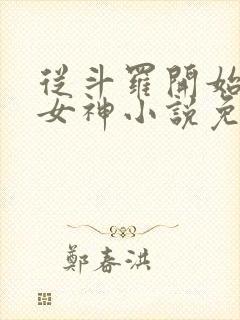 從斗羅開始
女神小説免
鄭春洪